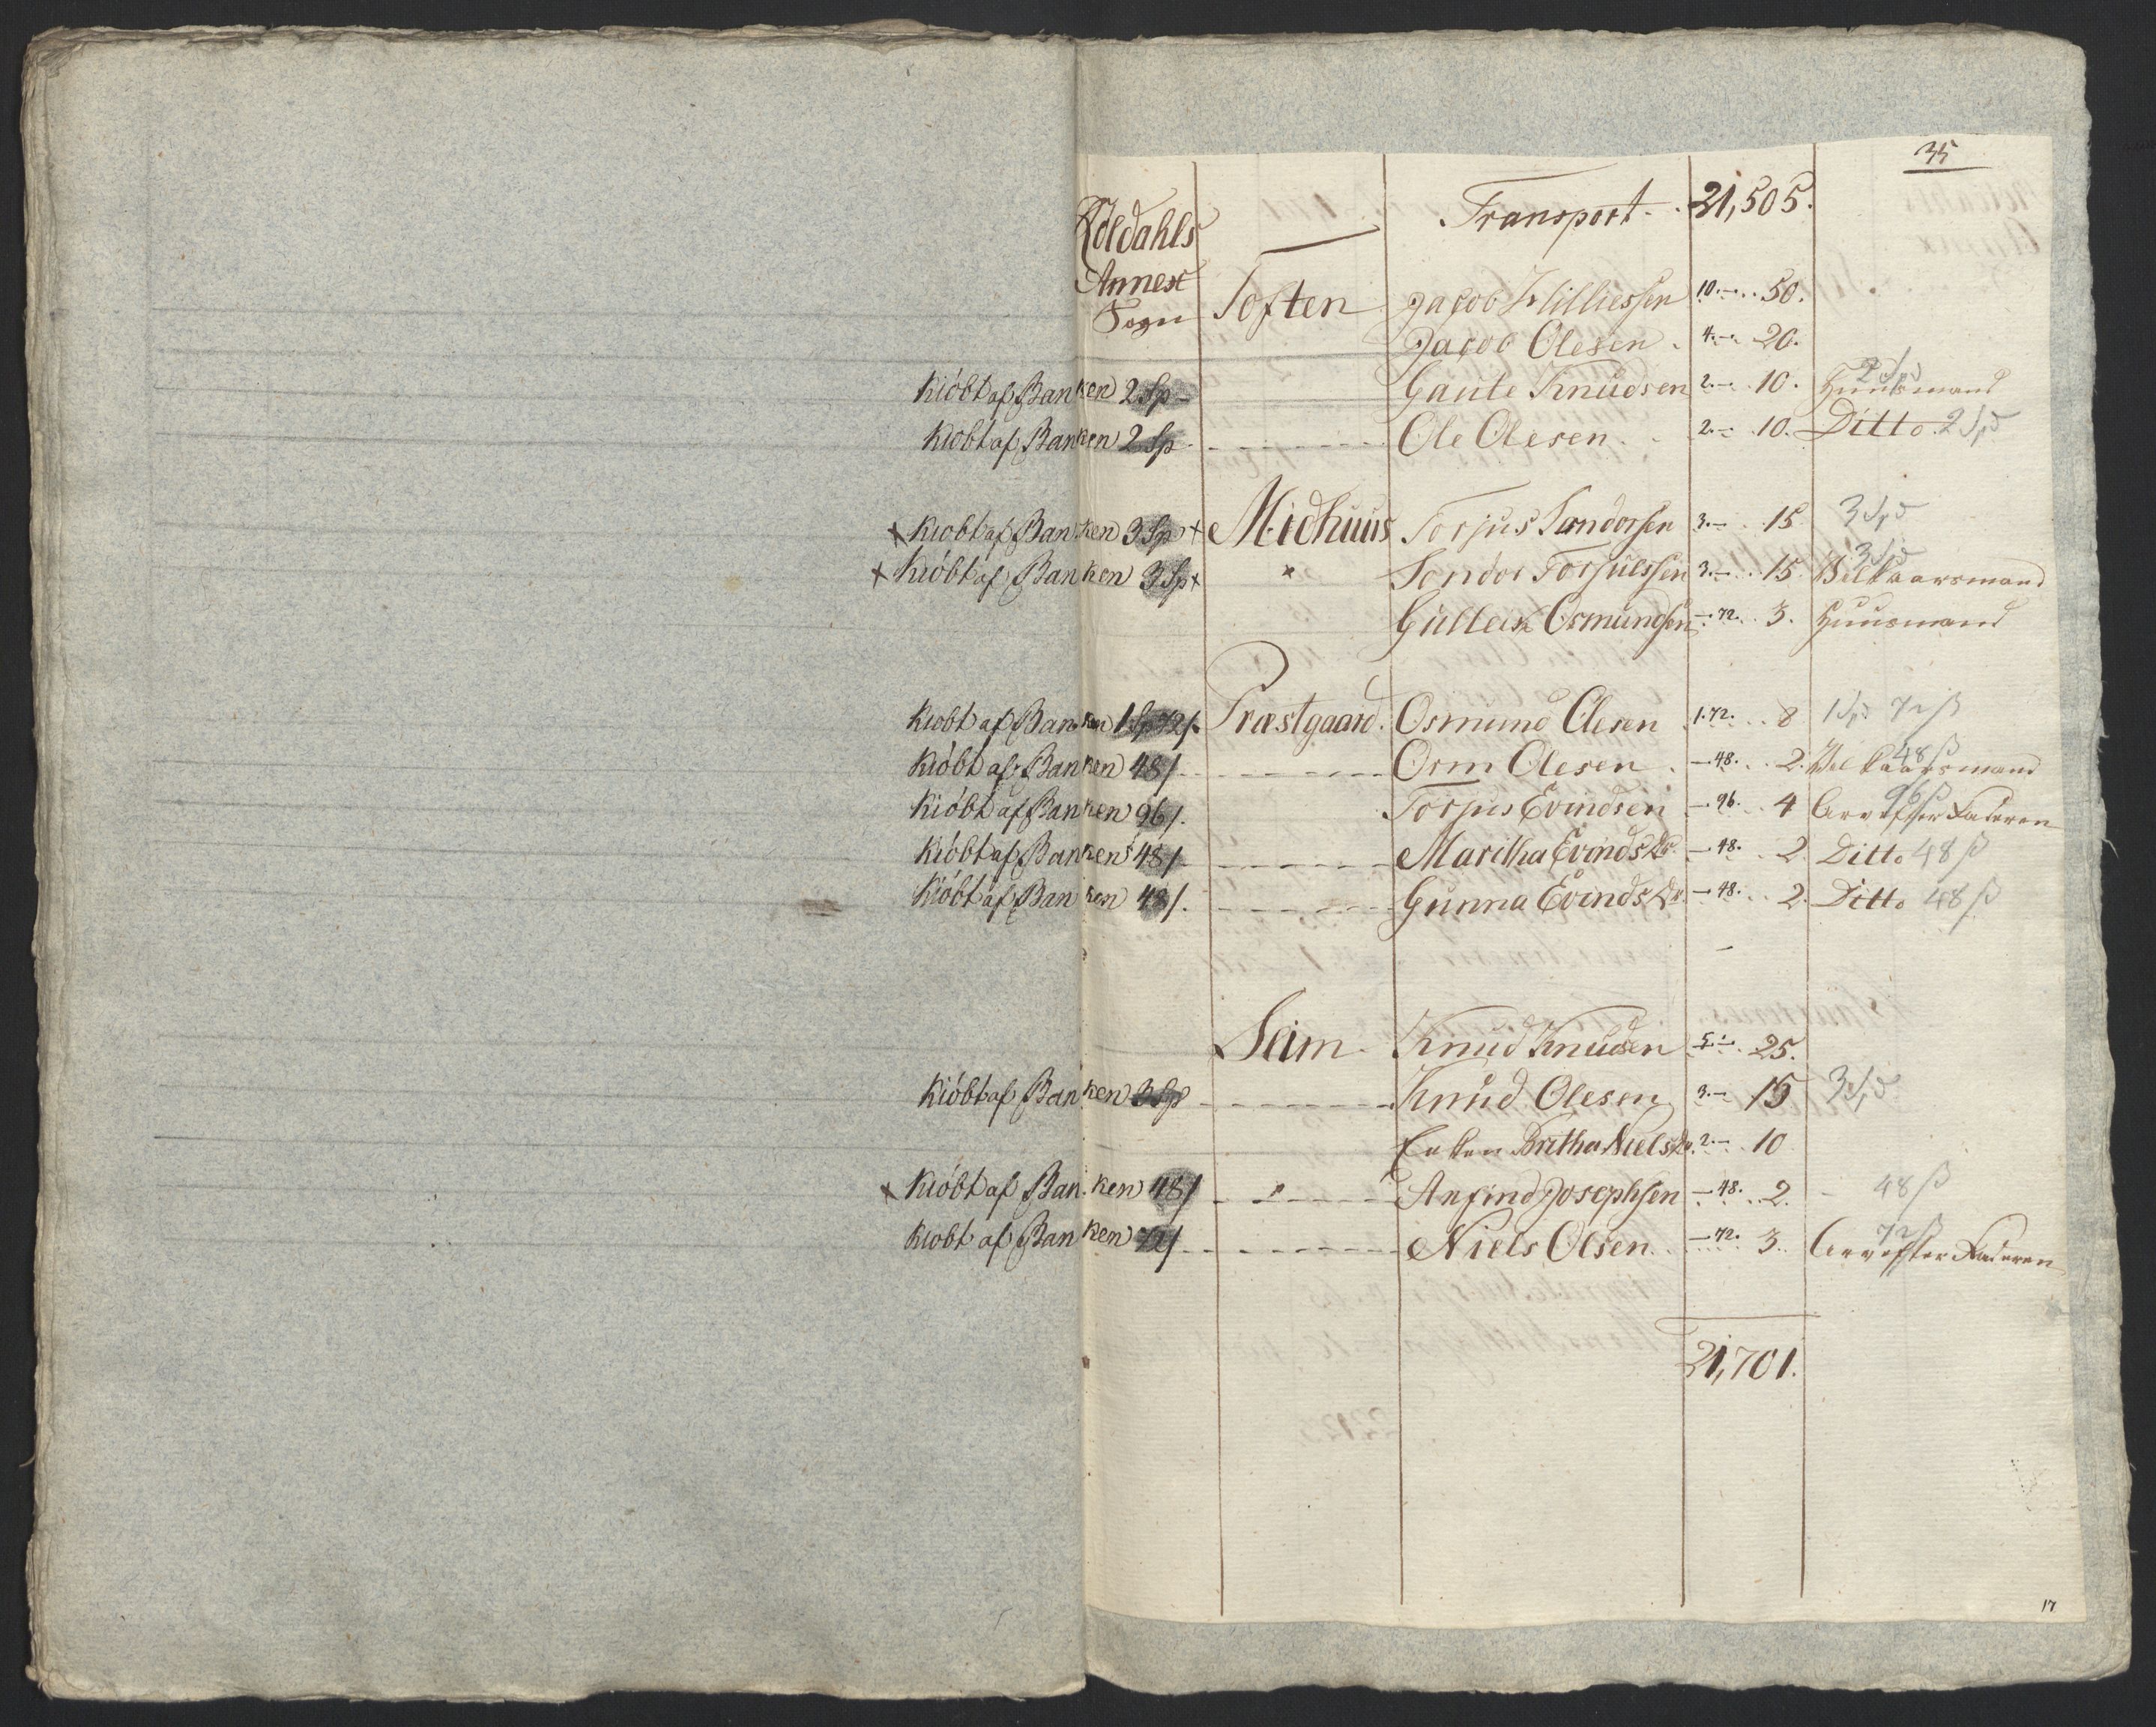 35
Transport 21,505.
Röldahls
Annex
Sogn
Toften Jacob Williessen 10.-. 50.
Jacob Olesen 4.-. 20.
Kiöbt af Banken 2 Sp Gaute Knudsen 2.-. 10. Huusmand 2 Spd
Kiöbt af Banken 2 Sp Ole Olesen 2.-. 10. Ditto 2 Spd
x Kiöbt af Banken 3 Sp x Midhuus Torjus Sandorsen 3.- 15 3 Spd
x Kiöbt af Banken 3 Sp x x Sondor Torjussen 3.- 15 Velkaarsmand 3 Spd
Gulleik Osmundsen -.72. 3. Huusmand
Kiöbt af Banken 1 Sp 72 ſ. Præstgaard. Osmund Olesen 1.72. 8 1 Spd 72 ß
Kiöbt af Banken 48 ſ. Orm Olesen -.48. 2. Velkaarsmand 48 ß
Kiöbt af Banken 96 ſ. Torjus Evindsen -.96. 4 Arv efter Faderen 96 ß
Kiöbt af Banken 48 ſ Maritha Evinds Dr. -.48. 2. Ditto 48 ß
Kiöbt af Banken 48 ſ. Gunna Evinds Dr. -.48. 2. Ditto 48 ß
Seim Knud Knudsen 5.-. 25.
Kiöbt af Banken 3 Sp Knud Olesen 3.- 15 3 Spd
Enken Britha Niels Dr. 2.- 10
x Kiöbt af Banken 48 ſ x Anfind Josephsen -.48. 2. 48 ß
Kiöbt af Banken 72 ſ Niels Olsen -.72. 3. Arv efter Faderen 72 ß
21,701.
17